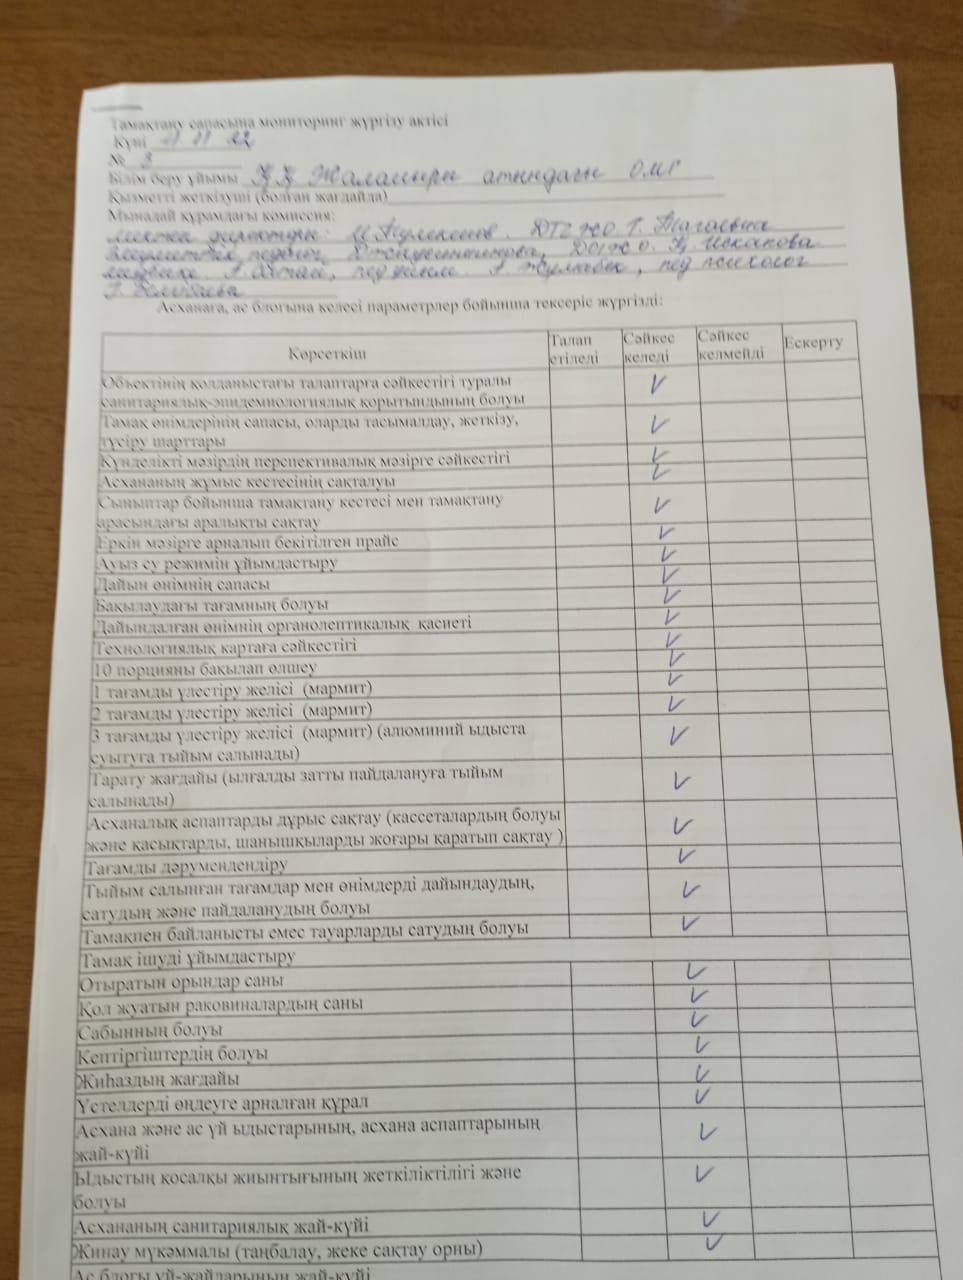 Тамақтану сапасына мониторинг жүргізу актісі
Күні 22
№ 3
Білім беру ұйымы Жалаңтыри атындағы ОМГ
Қызметті жеткізуші (болған жағдайда)
Мынадай құрамдағы комиссия:
мектеп директоры: ДТІЖО Г.
педагог ДОІЖО. Исканова
педиколог
Г.
Асханаға, ас блогына келесі параметрлер бойынша тексеріс жүргізді:
Көрсеткіш Талап етіледі Сәйкес келеді Сәйкес келмейді Ескерту
Объектінің қолданыстағы талаптарға сәйкестігі туралы
санитариялық-эпидемиологиялық қорытындының болуы
Тамақ өнімдерінің сапасы, оларды тасымалдау, жеткізу,
түсіру шарттары
Күнделікті мәзірдің перспективалық мәзірге сәйкестігі
Асхананың жұмыс кестесінің сақталуы
Сыныптар бойынша тамақтану кестесі мен тамақтану
арасындағы аралықты сақтау
Еркін мәзірге арналып бекітілген прайс
Ауыз су режимін ұйымдастыру
Дайын өнімнің сапасы
Бақылаудағы тағамның болуы
Дайындалған өнімнің органолептикалық қасиеті
Технологиялық картаға сәйкестігі
10 порцияны бақылап өлшеу
1 тағамды үлестіру желісі (мармит)
2 тағамды үлестіру желісі (мармит)
3 тағамды үлестіру желісі (мармит) (алюминий ыдыста
суытуға тыйым салынады)
Тарату жағдайы (ылғалды затты пайдалануға тыйым
салынады)
Асханалық аспаптарды дұрыс сақтау (кассеталардың болуы
және қасықтарды, шанышқыларды жоғары қаратып сақтау )
Тағамды дәрумендендіру
Тыйым салынған тағамдар мен өнімдерді дайындаудың,
сатудың және пайдаланудың болуы
Тамақпен байланысты емес тауарларды сатудың болуы
Тамақ ішуді ұйымдастыру
Отыратын орындар саны
Қол жуатын раковиналардың саны
Сабынның болуы
Кептіргіштердің болуы
Жиһаздың жағдайы
Үстелдерді өңдеуге арналған құрал
Асхана және ас үй ыдыстарының, асхана аспаптарының
жай-күйі
Ыдыстың қосалқы жиынтығының жеткіліктілігі және
болуы
Асхананың санитариялық жай-күйі
Жинау мүкәммалы (таңбалау, жеке сақтау орны)
Ас блогы үй-жайларының жай-күйі